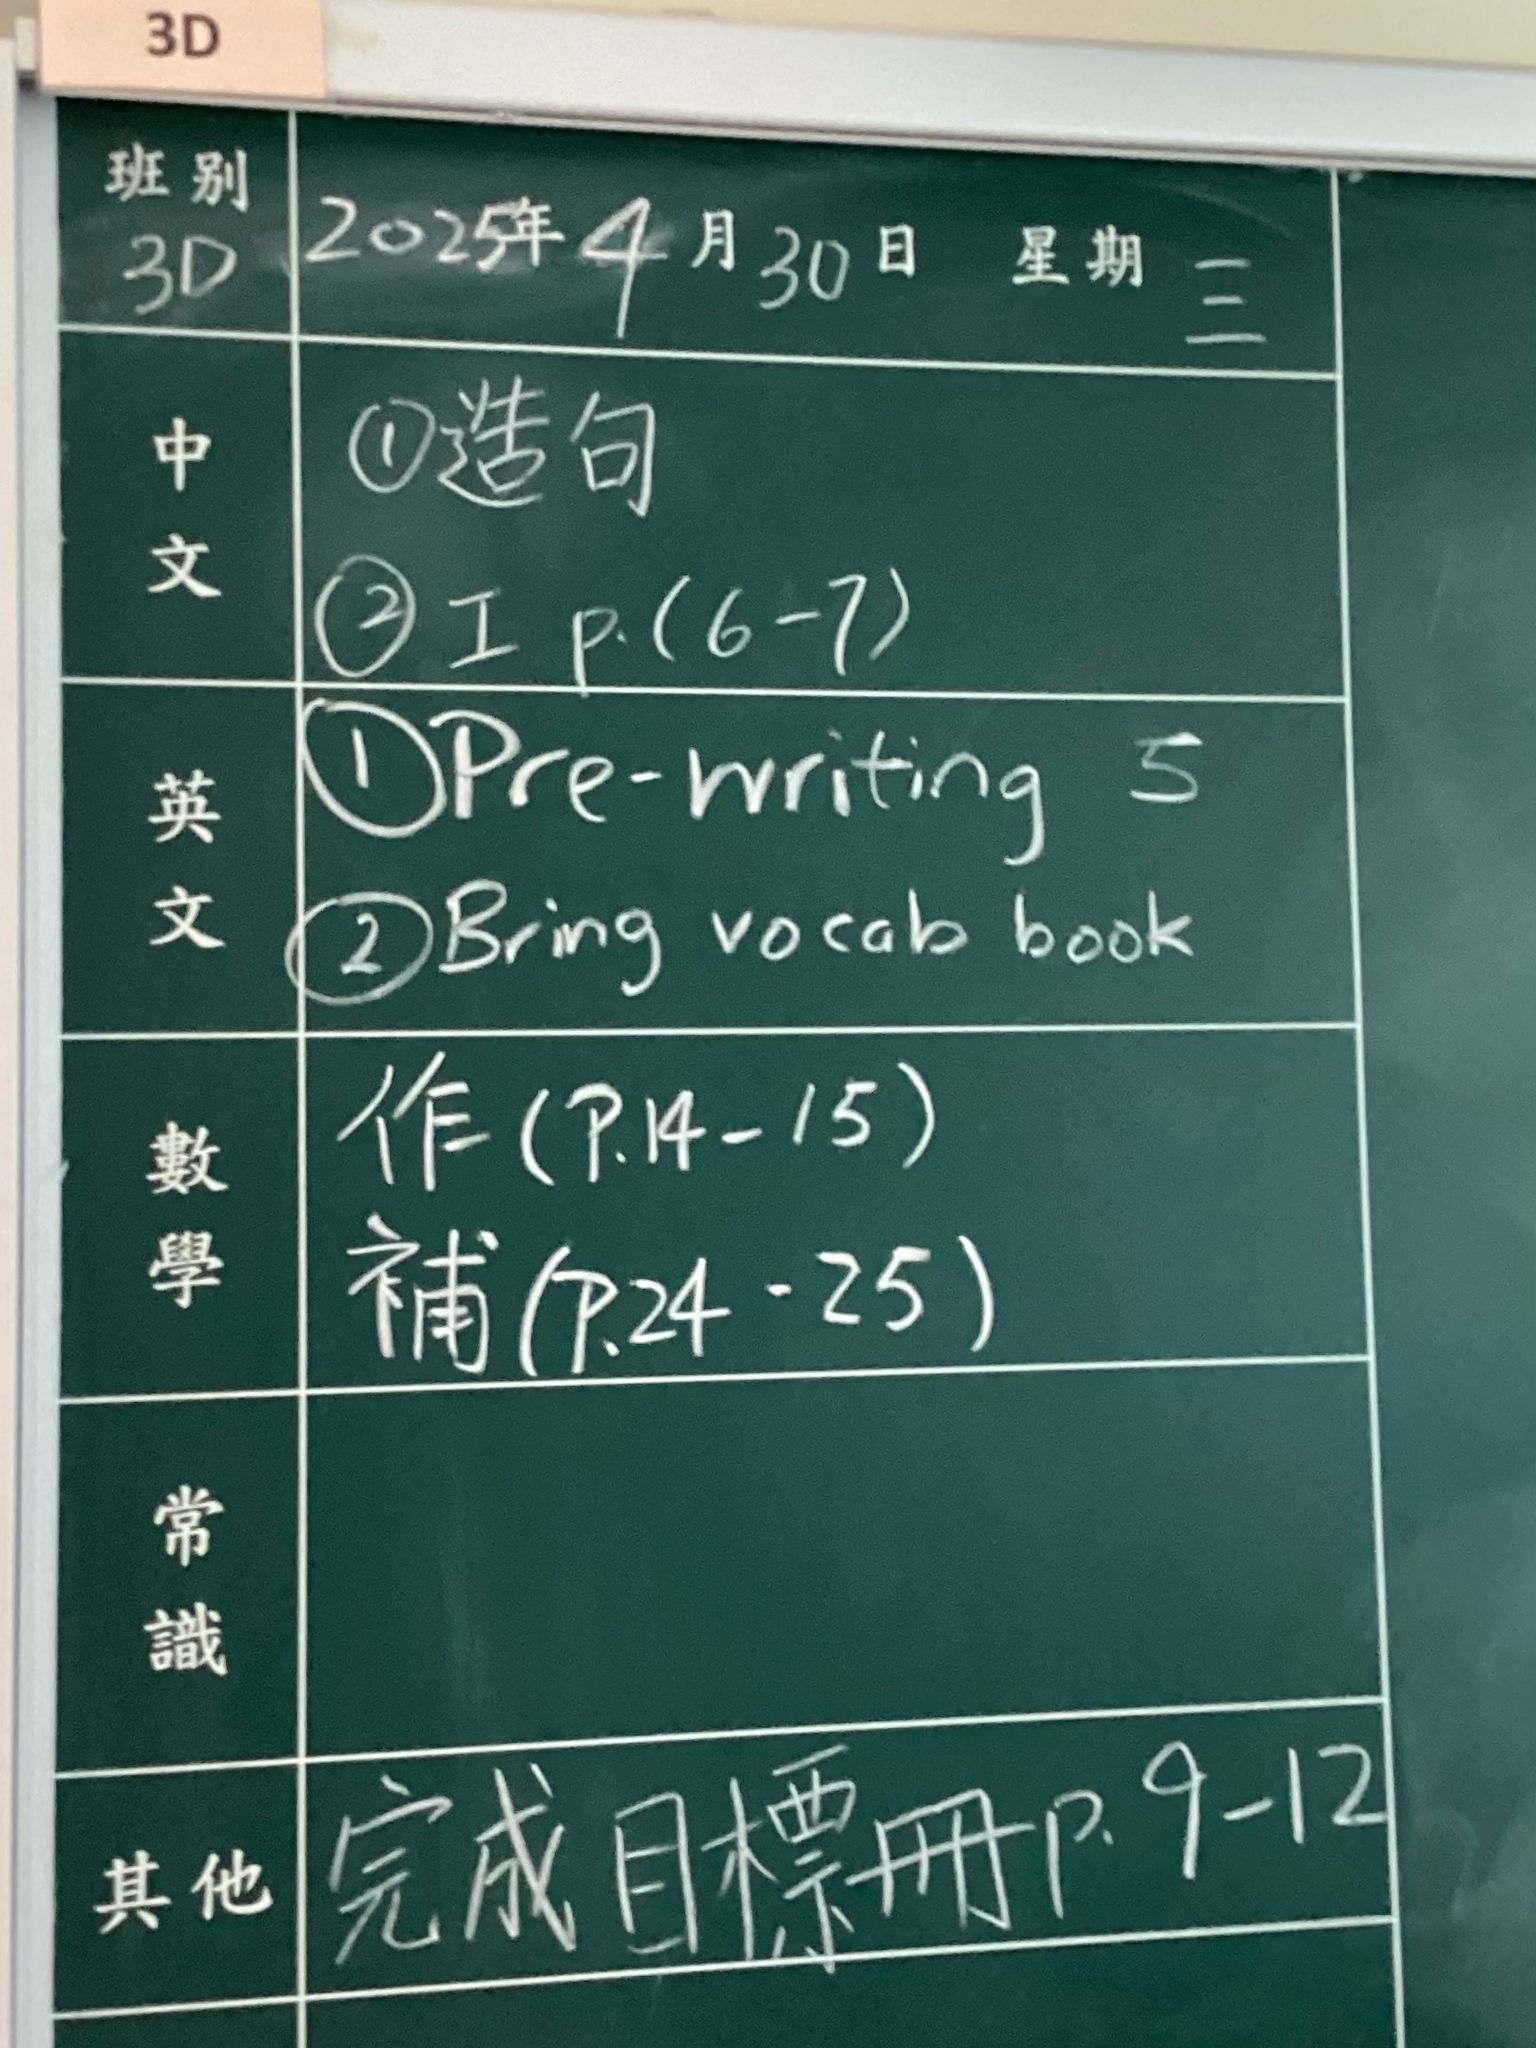 3D
班別 3D
2025年4月30日 星期三
中文
①造句
②工 p.(6-7)
英文
①Pre-writing 5
②Bring vocab book
數學
作(P.14-15)
補(P.24-25)
常識
其他
完成目標冊p.9-12